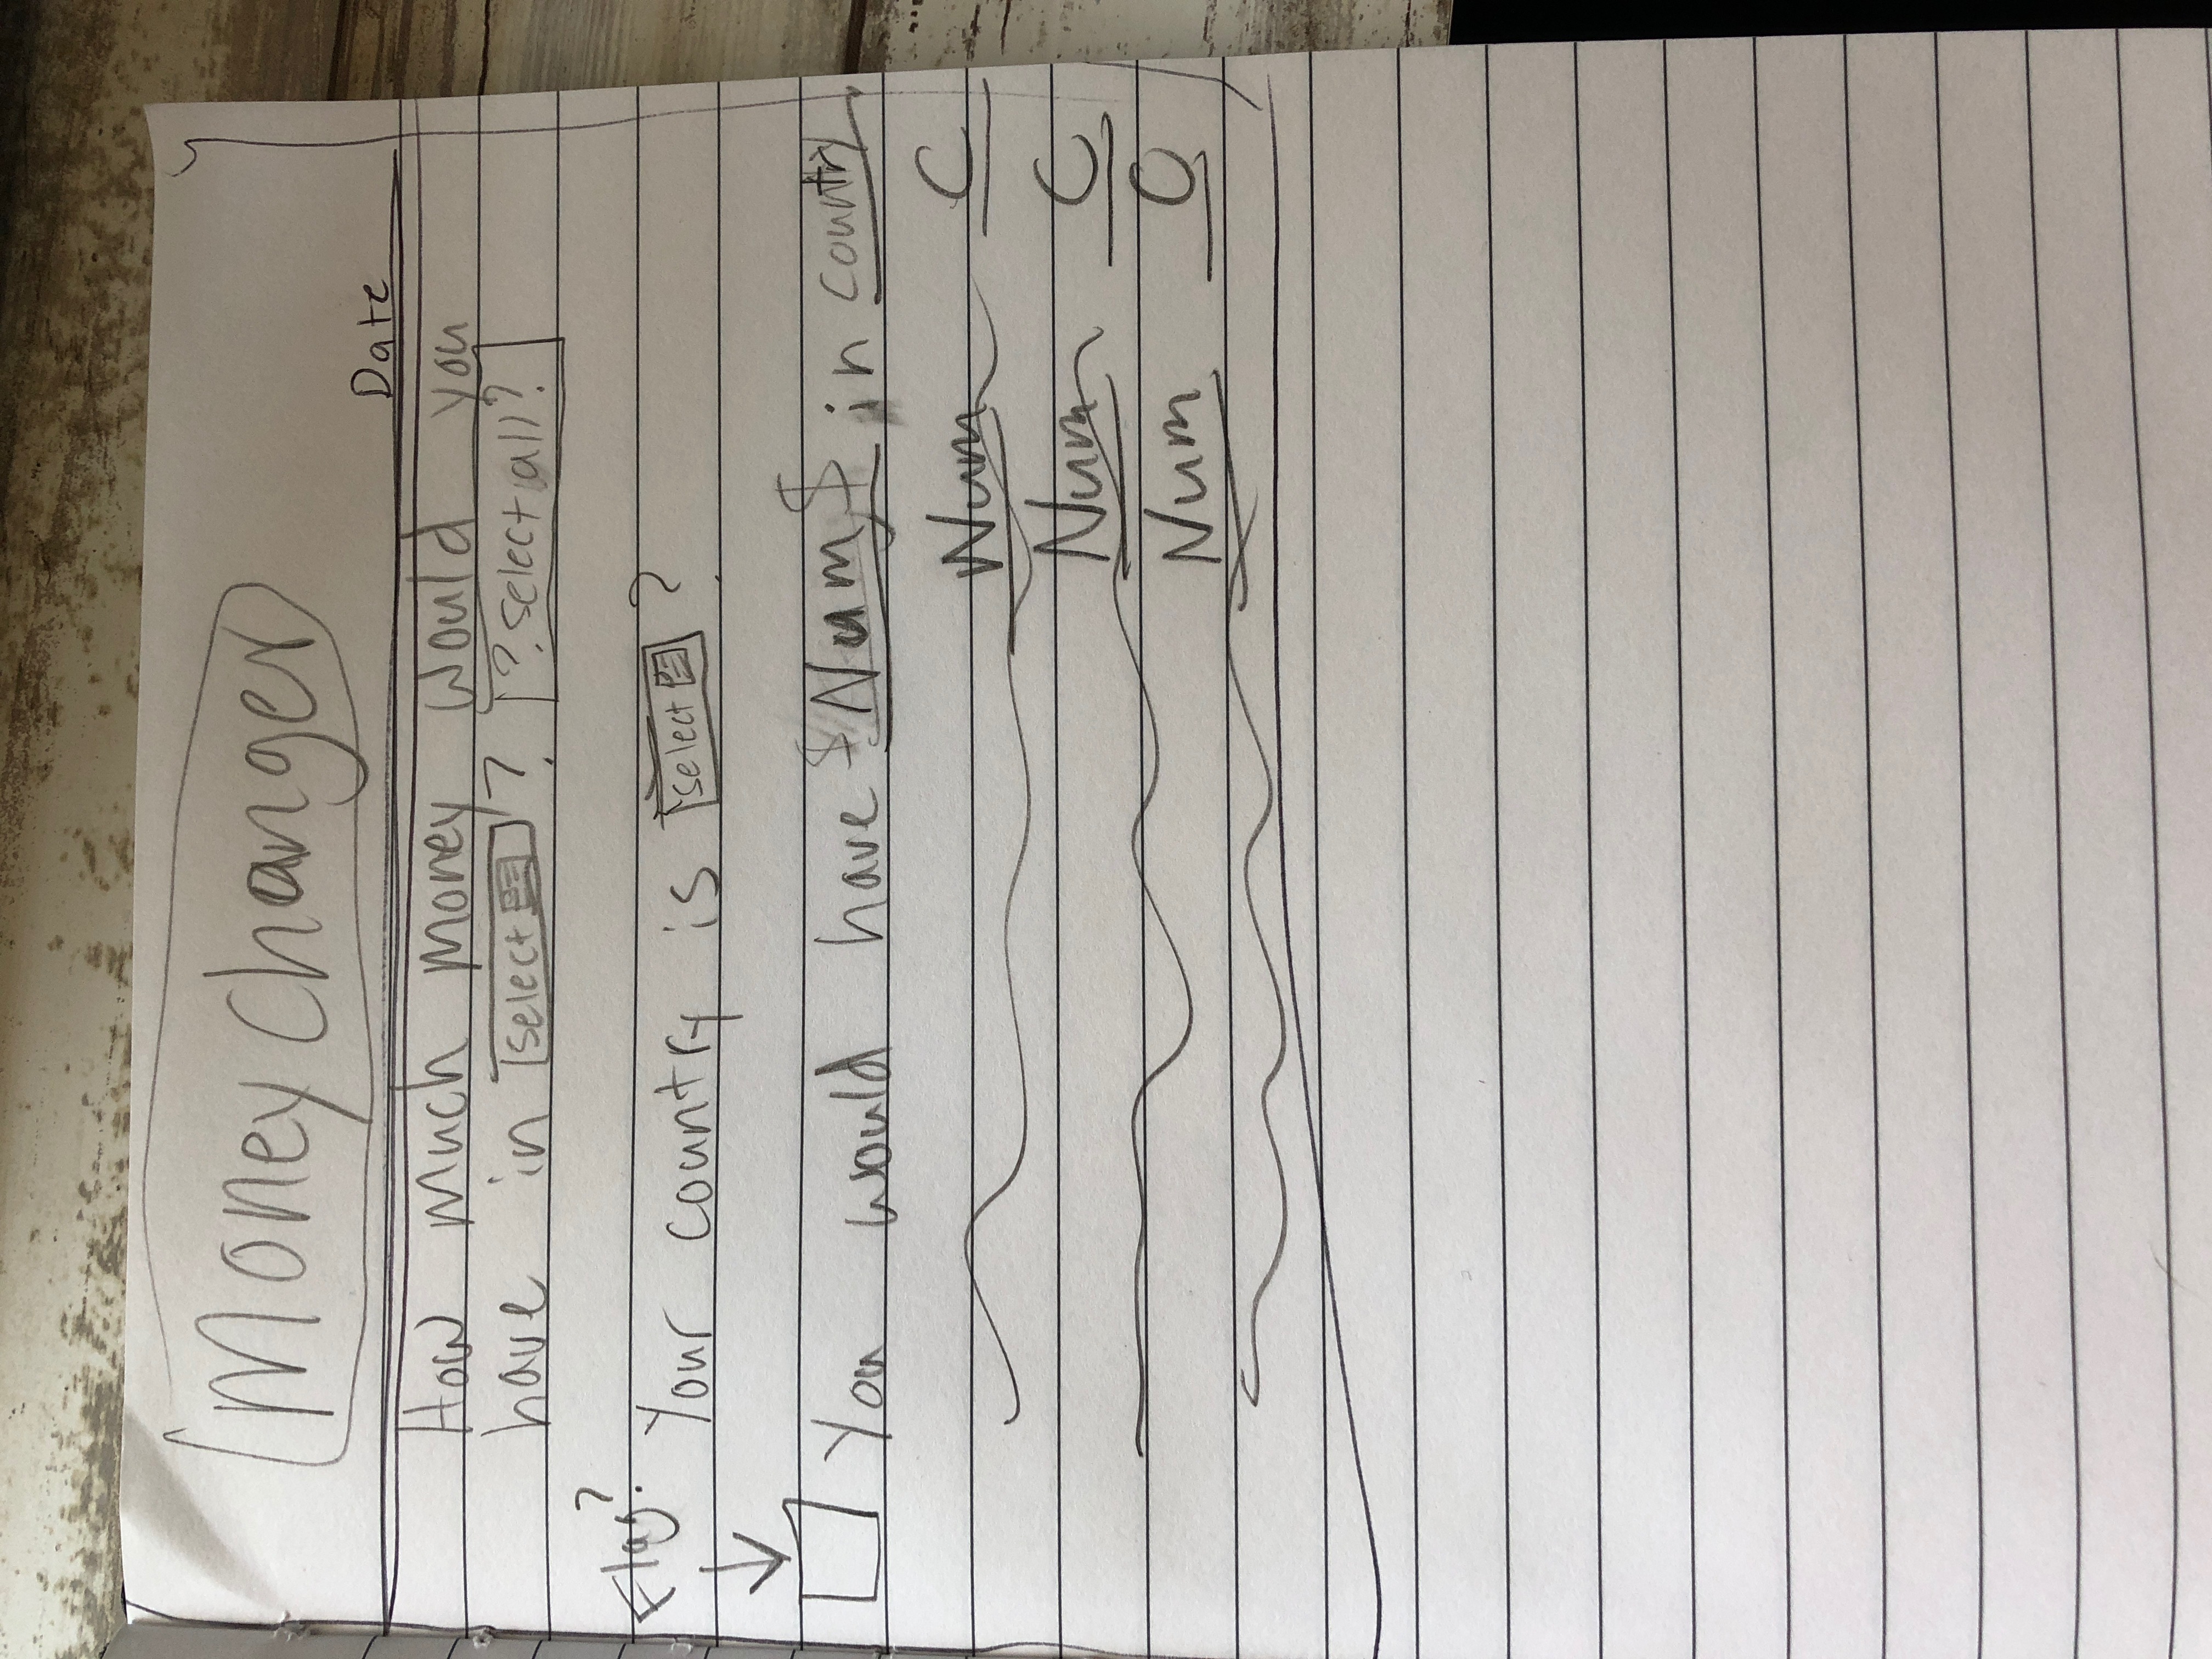 Money changer
Date
How much money would you
have in select ? ? select all?
Flag?
Your country is select ?
You would have $ Num $ in country
Num C
Num C
Num C